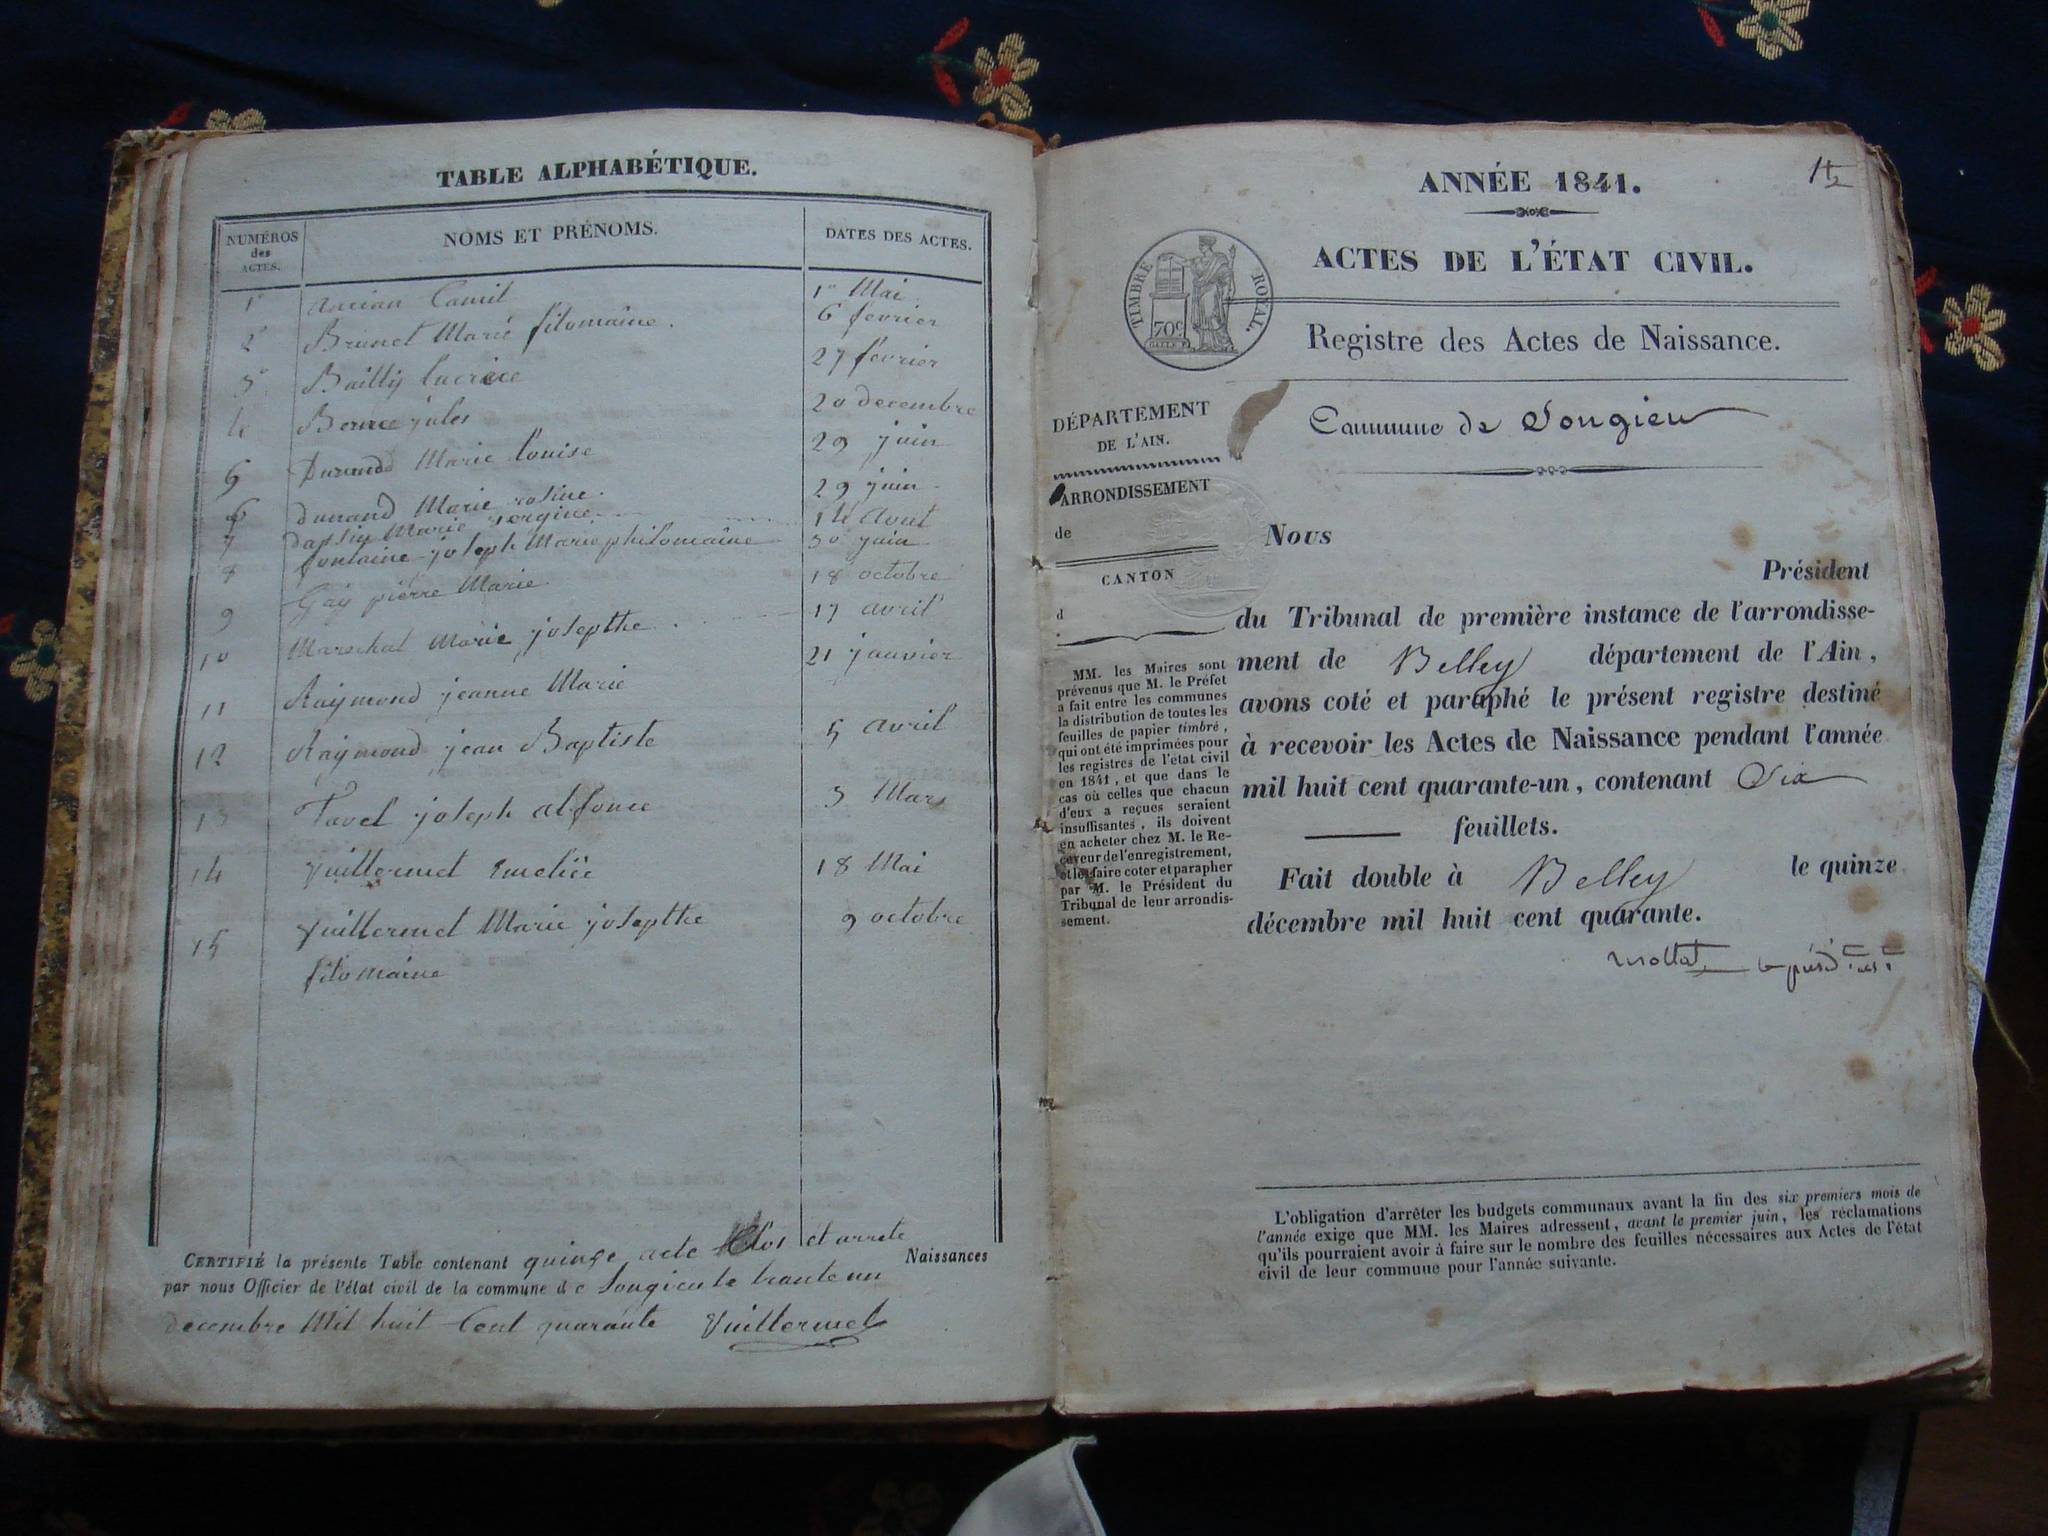 TABLE ALPHABÉTIQUE.
NUMÉROS
des
ACTES.
NOMS ET PRÉNOMS.
DATES DES ACTES.
1° Camil 1er Mai
2° Brunet Marie filomaine. 6 fevrier
3° Bailly lucrèce 27 fevrier
4 jules 20 decembre
5 Durand Marie louise 29 juin
6 durand Marie rosine. 29 juin
7 Marie 14 Aout
8 fontaine joseph Marie philomaine 30 juin
9 Gay pierre Marie 18 octobre
10 Marechal Marie josepthe 17 avril
11 Raymond jeanne Marie 21 janvier
12 Raymond jean Baptiste 5 avril
13 Tavel joseph alfonce 3 Mars
14 Vuillermet Emeliée 18 Mai
15 Vuillermet Marie josepthe 9 octobre
filomaine
CERTIFIÉ la présente Table contenant quinze acte Clos et arrete Naissances
par nous Officier de l'état civil de la commune de Songieu le trante un
decembre Mil huit Cent quarante Vuillermet
ANNÉE 1841.
ACTES DE L'ÉTAT CIVIL.
TIMBRE ROYAL.
70c
Registre des Actes de Naissance.
Commune de Songieu
DÉPARTEMENT
DE L'AIN.
ARRONDISSEMENT
de
CANTON
d
MM. les Maires sont
prévenus que M. le Préfet
a fait entre les communes
la distribution de toutes les
feuilles de papier timbré,
qui ont été imprimées pour
les registres de l'état civil
en 1841, et que dans le
cas où celles que chacun
d'eux a reçues seraient
insuffisantes, ils doivent
en acheter chez M. le Re-
ceveur de l'enregistrement,
et les faire coter et parapher
par M. le Président du
Tribunal de leur arrondis-
sement.
Nous
Président
du Tribunal de première instance de l'arrondisse-
ment de Belley département de l'Ain,
avons coté et paraphé le présent registre destiné
à recevoir les Actes de Naissance pendant l'année
mil huit cent quarante-un, contenant Six
feuillets.
Fait double à Belley le quinze
décembre mil huit cent quarante.
L'obligation d'arrêter les budgets communaux avant la fin des six premiers mois de
l'année exige que MM. les Maires adressent, avant le premier juin, les réclamations
qu'ils pourraient avoir à faire sur le nombre des feuilles nécessaires aux Actes de l'état
civil de leur commune pour l'année suivante.